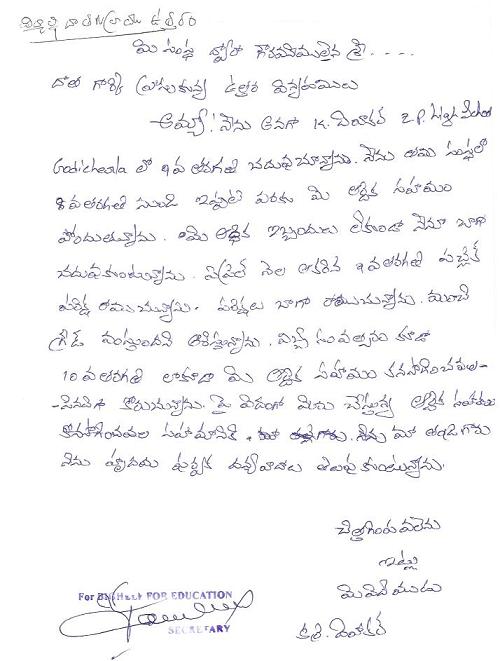 విద్యార్థి దాతగార్కి వ్రాయు ఉత్తరం
మీ సంస్థ ద్వారా గౌరవనీయులైన శ్రీ . . . .
దాత గార్కి వ్రాసుకున్న ఉత్తర విన్నపములు
అమ్మా! నేను అనగా K. దివాకర్ Z.P. High School
Godicherla లో 9వ తరగతి చదువుచున్నాను. నేను తమ సంస్థలో
8వ తరగతి నుండి ఇప్పటి వరకు మీ ఆర్థిక సహాయం
పొందుతున్నాను. ఏమి ఆర్థిక ఇబ్బందులు లేకుండా నేను బాగా
చదువుకుంటున్నాను. ఏప్రిల్ నెల ఆఖరిన 9వ తరగతి పబ్లిక్
పరీక్ష రాయుచున్నాను. పరీక్షలు బాగా రాయుచున్నాను. మంచి
గ్రేడ్ వస్తుందని ఆశిస్తున్నాను. వచ్చే సంవత్సరం కూడా
10వ తరగతి లో కూడా మీ ఆర్థిక సహాయం కొనసాగించవల-
-సినదిగా కోరుచున్నాను. పై విధంగా మీరు చేస్తున్న ఆర్థిక సహాయం
కొనసాగించవల సహాయానికి మా నేను మా తండ్రి గారు
నేను హృదయ పూర్వక ధన్యవాదాలు తెలుపుకుంటున్నాను.
చిత్తగించవలెను
ఇట్లు
మీ విధేయుడు
కె. దివాకర్
For HELP FOR EDUCATION
SECRETARY